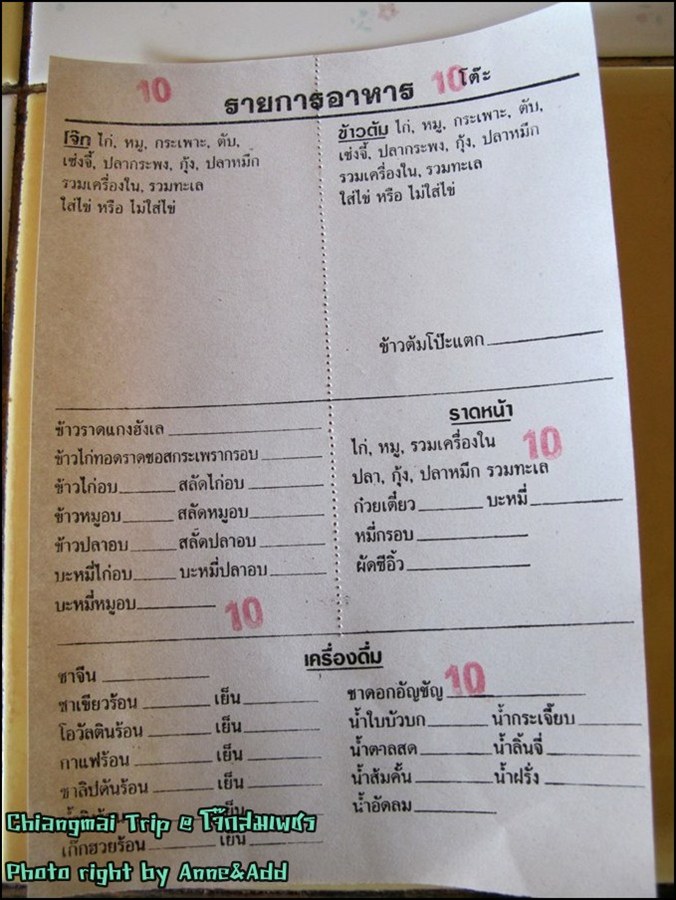 10 รายการอาหาร 10 โต๊ะ
โจ๊ก ไก่, หมู, กระเพาะ, ตับ,
เซ่งจี้, ปลากระพง, กุ้ง, ปลาหมึก
รวมเครื่องใน, รวมทะเล
ใส่ไข่ หรือ ไม่ใส่ไข่
ข้าวต้ม ไก่, หมู, กระเพาะ, ตับ,
เซ่งจี้, ปลากระพง, กุ้ง, ปลาหมึก
รวมเครื่องใน, รวมทะเล
ใส่ไข่ หรือ ไม่ใส่ไข่
ข้าวต้มโป๊ะแตก
ข้าวราดแกงฮังเล
ข้าวไก่ทอดราดซอสกระเพรากรอบ
ข้าวไก่อบ สลัดไก่อบ
ข้าวหมูอบ สลัดหมูอบ
ข้าวปลาอบ สลัดปลาอบ
บะหมี่ไก่อบ บะหมี่ปลาอบ
บะหมี่หมูอบ 10
ราดหน้า
ไก่, หมู, รวมเครื่องใน 10
ปลา, กุ้ง, ปลาหมึก รวมทะเล
ก๋วยเตี๋ยว บะหมี่
หมี่กรอบ
ผัดซีอิ้ว
เครื่องดื่ม
ชาจีน
ชาเขียวร้อน เย็น
โอวัลตินร้อน เย็น
กาแฟร้อน เย็น
ชาลิปตันร้อน เย็น
เย็น
เก๊กฮวยร้อน เย็น
ชาดอกอัญชัญ 10
น้ำใบบัวบก น้ำกระเจี๊ยบ
น้ำตาลสด น้ำลิ้นจี่
น้ำส้มคั้น น้ำฝรั่ง
น้ำอัดลม
Chiangmai Trip @ โจ๊กสมเพชร
Photo right by Anne&Add